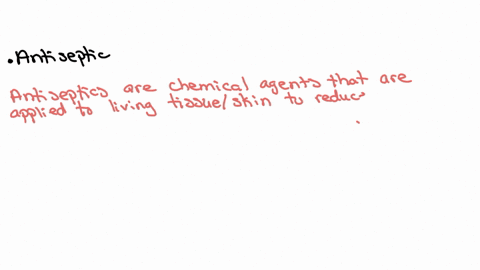 • Antiseptic
Antiseptics are chemical agents that are
applied to living tissue/skin to reduc